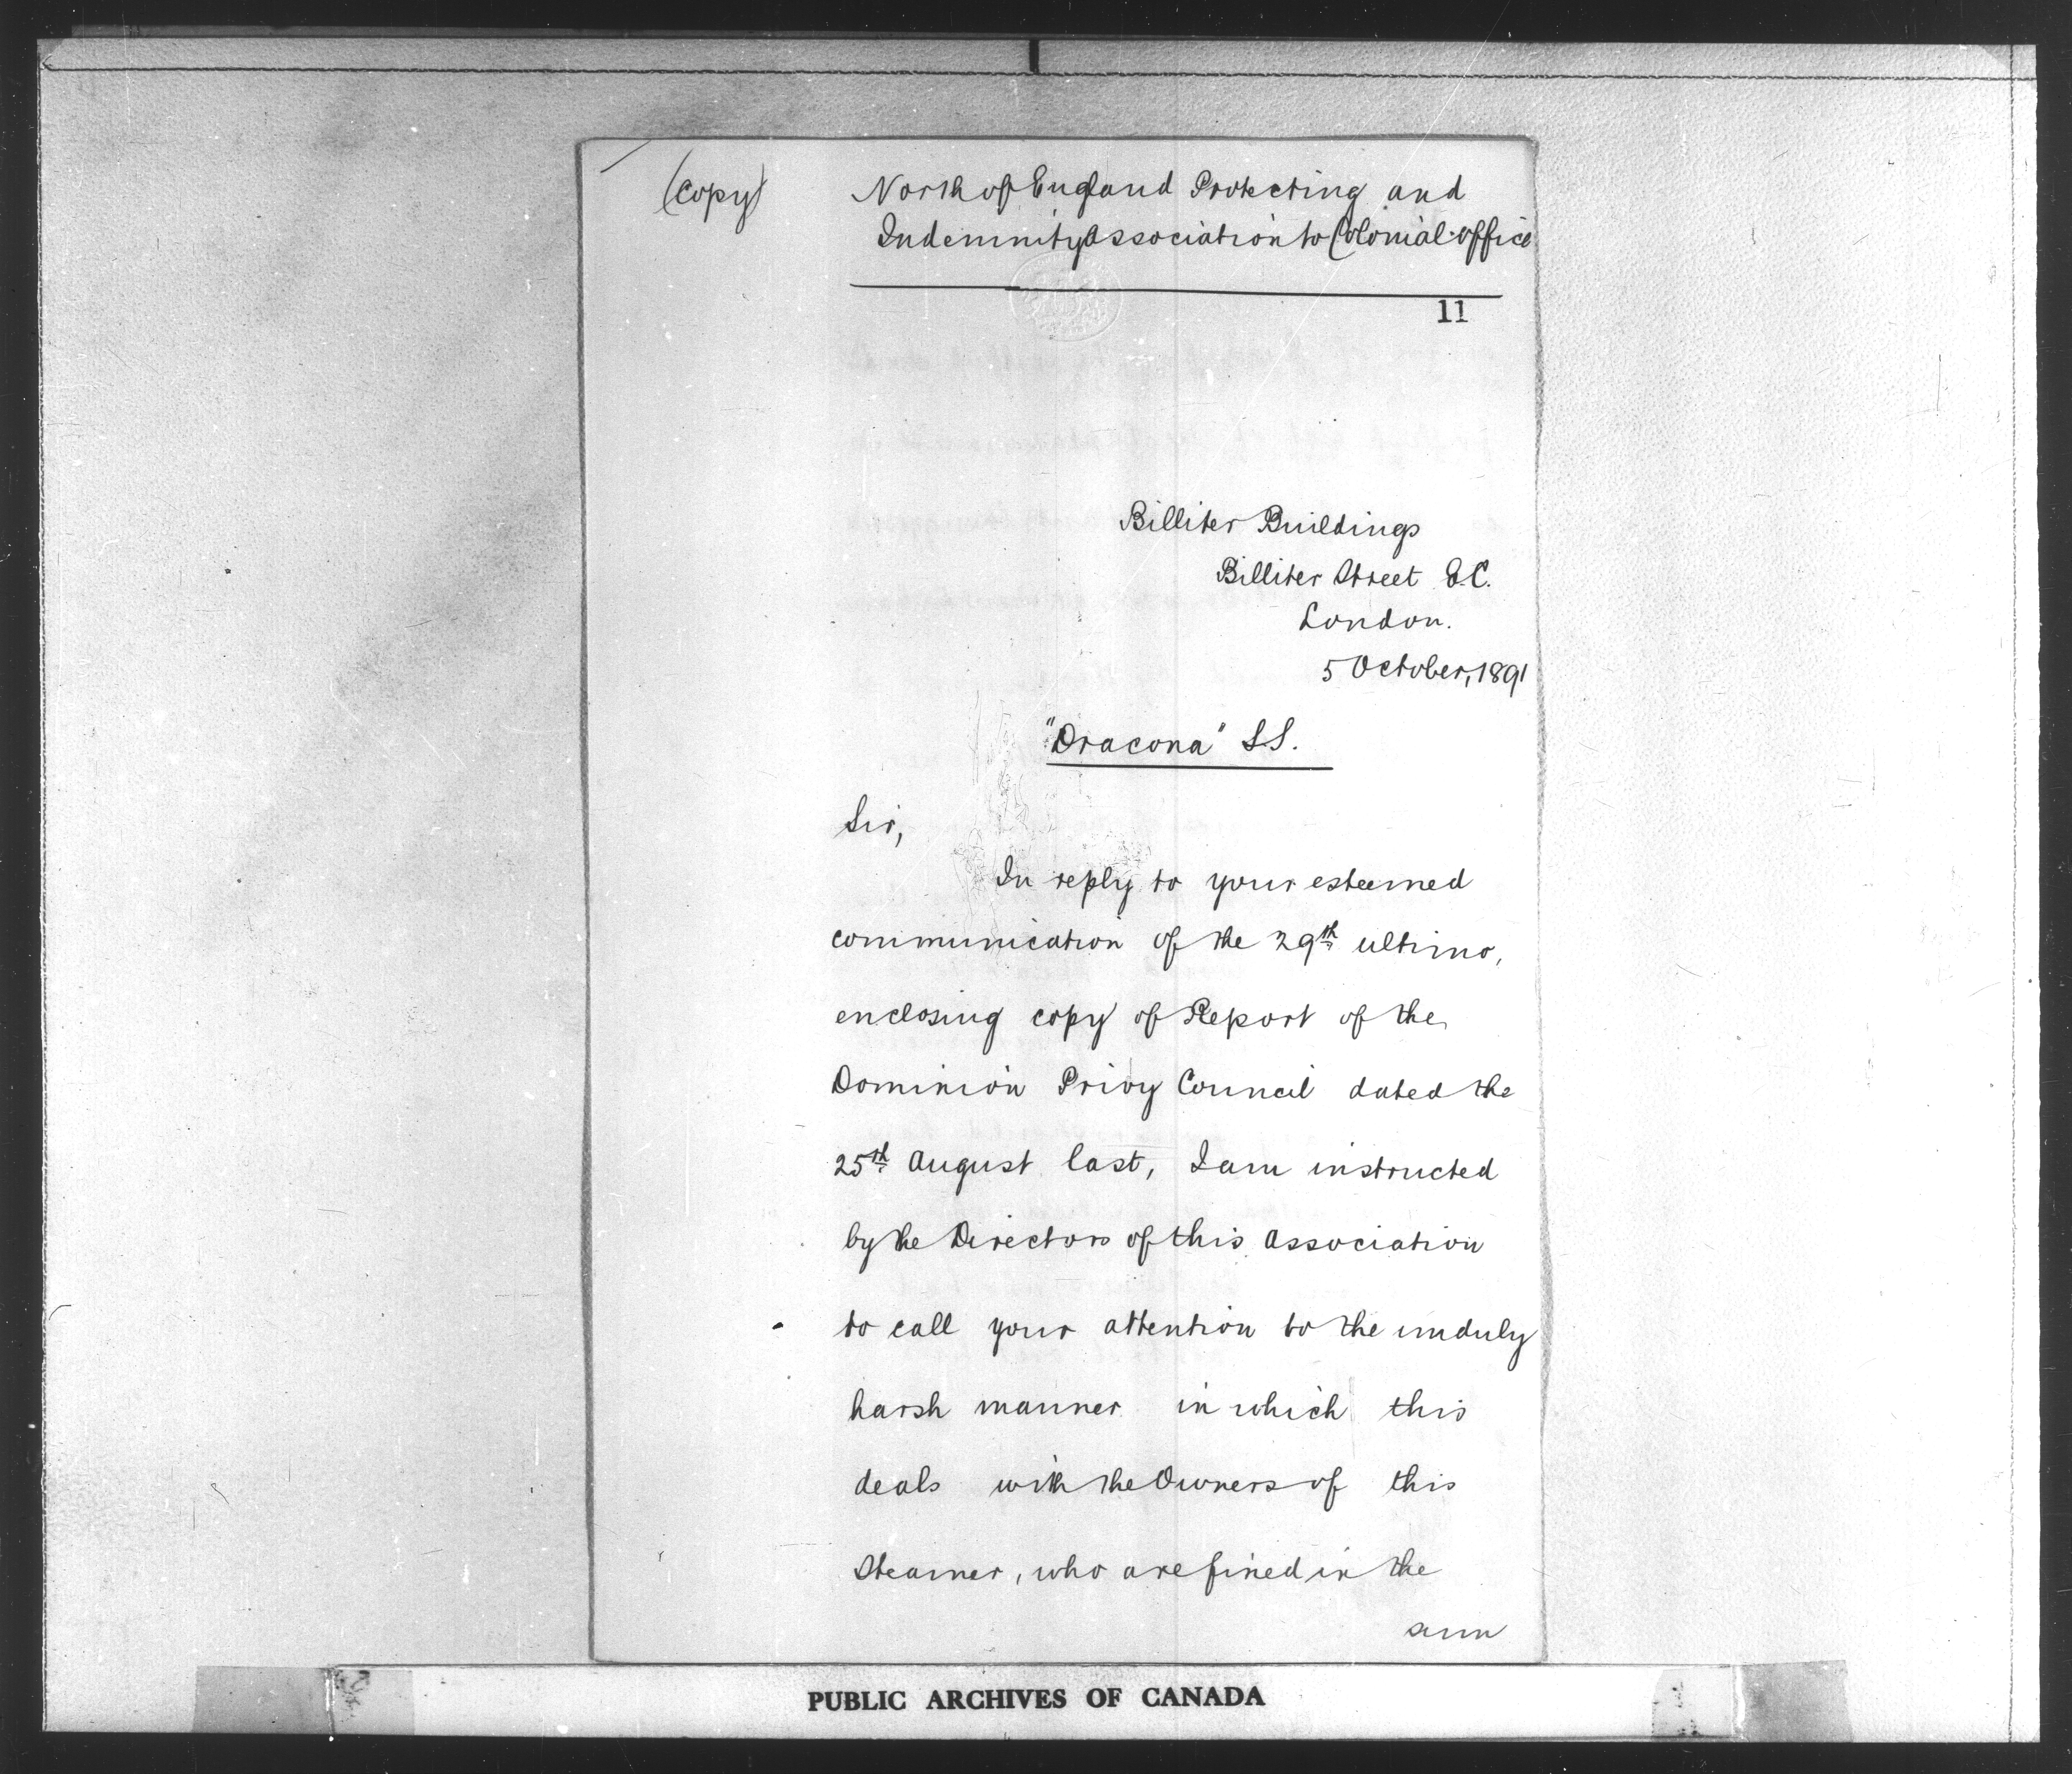 (Copy)
North of England Protecting and
Indemnity Association to Colonial Office
11
Billiter Buildings
Billiter Street E.C.
London.
5 October, 1891
"Dracona" S.S.
Sir,
In reply to your esteemed
communication of the 29th ultimo,
enclosing copy of Report of the
Dominion Privy Council dated the
25th August last, I am instructed
by the Directors of this Association
to call your attention to the unduly
harsh manner in which this
deals with the Owners of this
Steamer, who are fined in the
sum
PUBLIC ARCHIVES OF CANADA